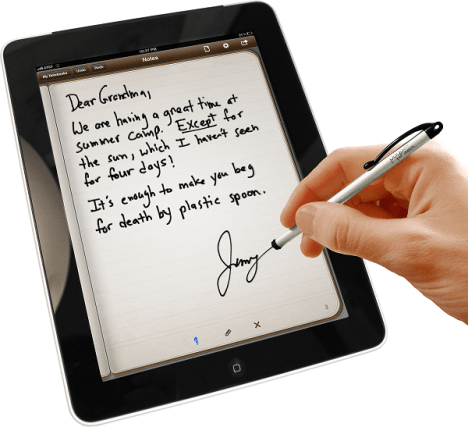 Notes
My Notebooks Undo Redo
Dear Grandma,
We are having a great time at
summer camp. Except for
the sun, which I haven't seen
for four days!
It's enough to make you beg
for death by plastic spoon.
Jenny